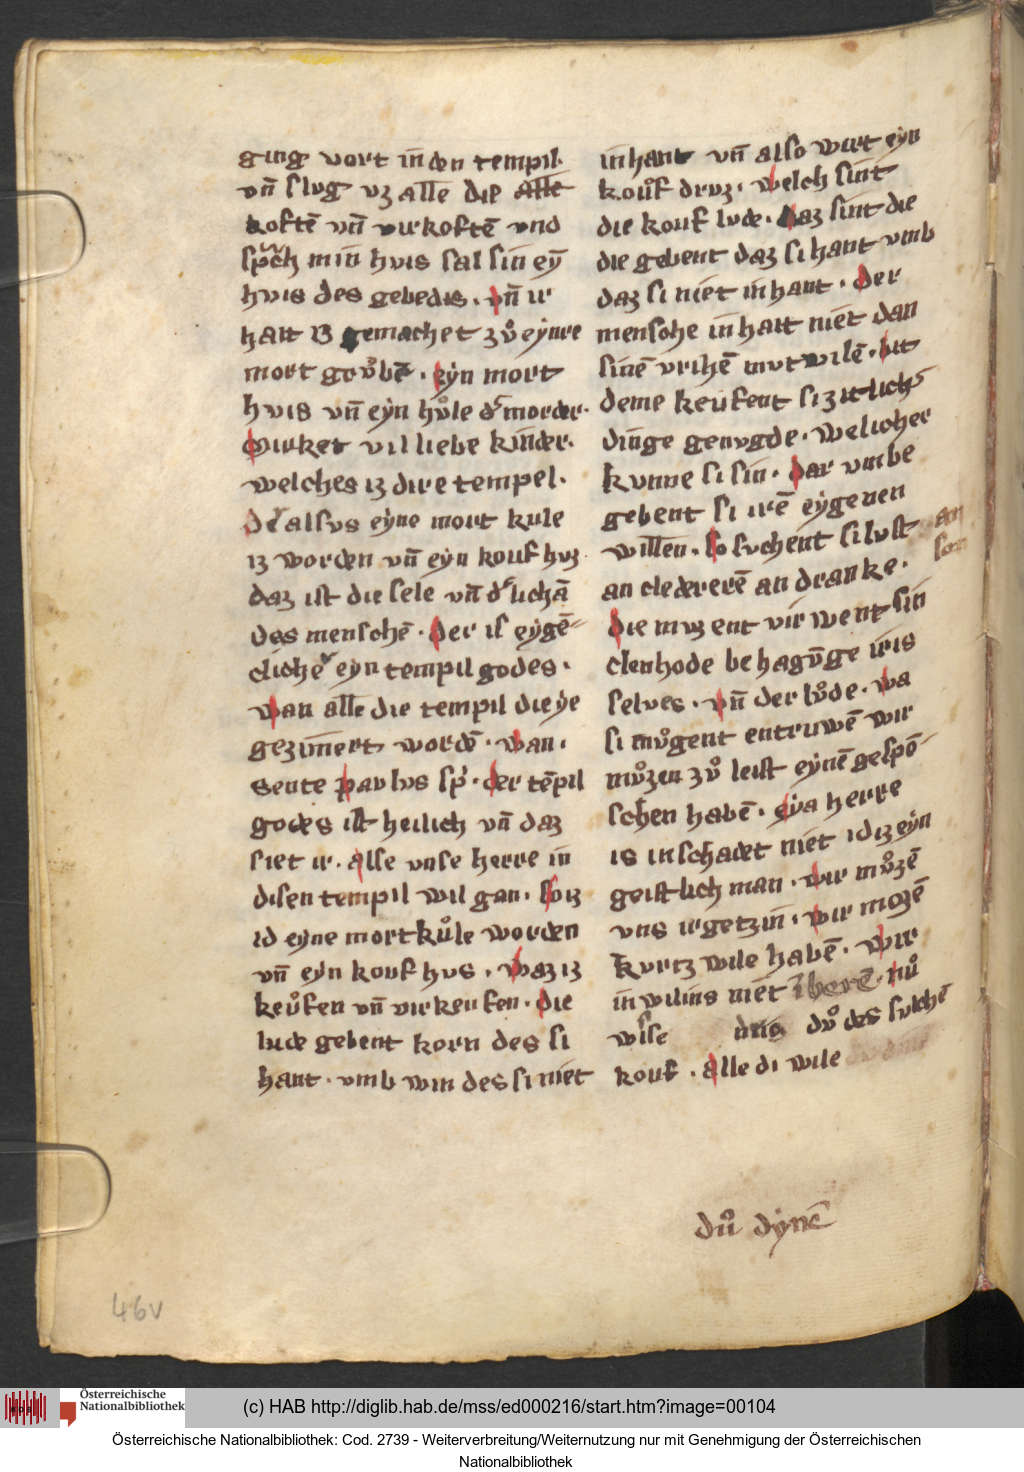 ging vort in den tempil.
vn̄ slug vz allē die allē
koftē vn̄ virkoftē vnd
sp̄ch min hvis sal sin eȳ
hvis des gebedis. vn̄ ir
hait iz gemachet zvͦ eẏnre
mort grvͦbē. eẏn mort
hvis vn̄ eẏn hvͦle d' morder.
Mirket vil liebe kinder.
welches iz dire tempel.
der alsvs eẏne mort kule
iz worden vn̄ eẏn kouf hvz.
daz ist die sele vn̄ d' lichā
des menschē. der is eẏgē=
cliche eyn tempil godes.
wan allē die tempil die ẏe
gezimert wordē. wan.
sente pavlvs sp̄. der tēpil
godes ist heilich vn̄ daz
siet ir. alse vnse herre in
disen tempil wil gan. so iz
id eyne mort kvͦle worden
vn̄ eẏn kouf hvs. waz iz
kevͦfen vn̄ virkeufen. die
lude gebent korn des si
hant. vmb win des si niet
in hant vn̄ also wirt eẏn
kouͦf druz. welch sint
die kouf lude. daz sint die
die gebent daz si hant vmb
daz si niet in hant. der
mensche in hait niet dan
sinē vrihē mutwilē. mit
deme keufent si zitlich'
dinge genvgde. welicher
kvnne si sin. dar vmbe
gebent si irē eẏgenen
willen. so suchent si lust
an cledererē an dranke.
die miz ent vir went sin
clenhode behagvn̄ge iris
selves. vn̄ der lvͦde. wa
si mvͦgent entruwē wir
mvͦzin zvͦ leist eẏnē gespē=
schen habē. eẏa herre
is inschadet niet id iz eẏn
geistlich man. wir mvͦzē
vns irgetzin. wir mozē
kurtz wile habē. wir
in wilins niet īberē. nvͦ
wise dine dvͦ des sulchē
kouf. alle di wile
dvͦ dẏnē
46v
Österreichische
Nationalbibliothek
(c) HAB http://diglib.hab.de/mss/ed000216/start.htm?image=00104
Österreichische Nationalbibliothek: Cod. 2739 - Weiterverbreitung/Weiternutzung nur mit Genehmigung der Österreichischen
Nationalbibliothek